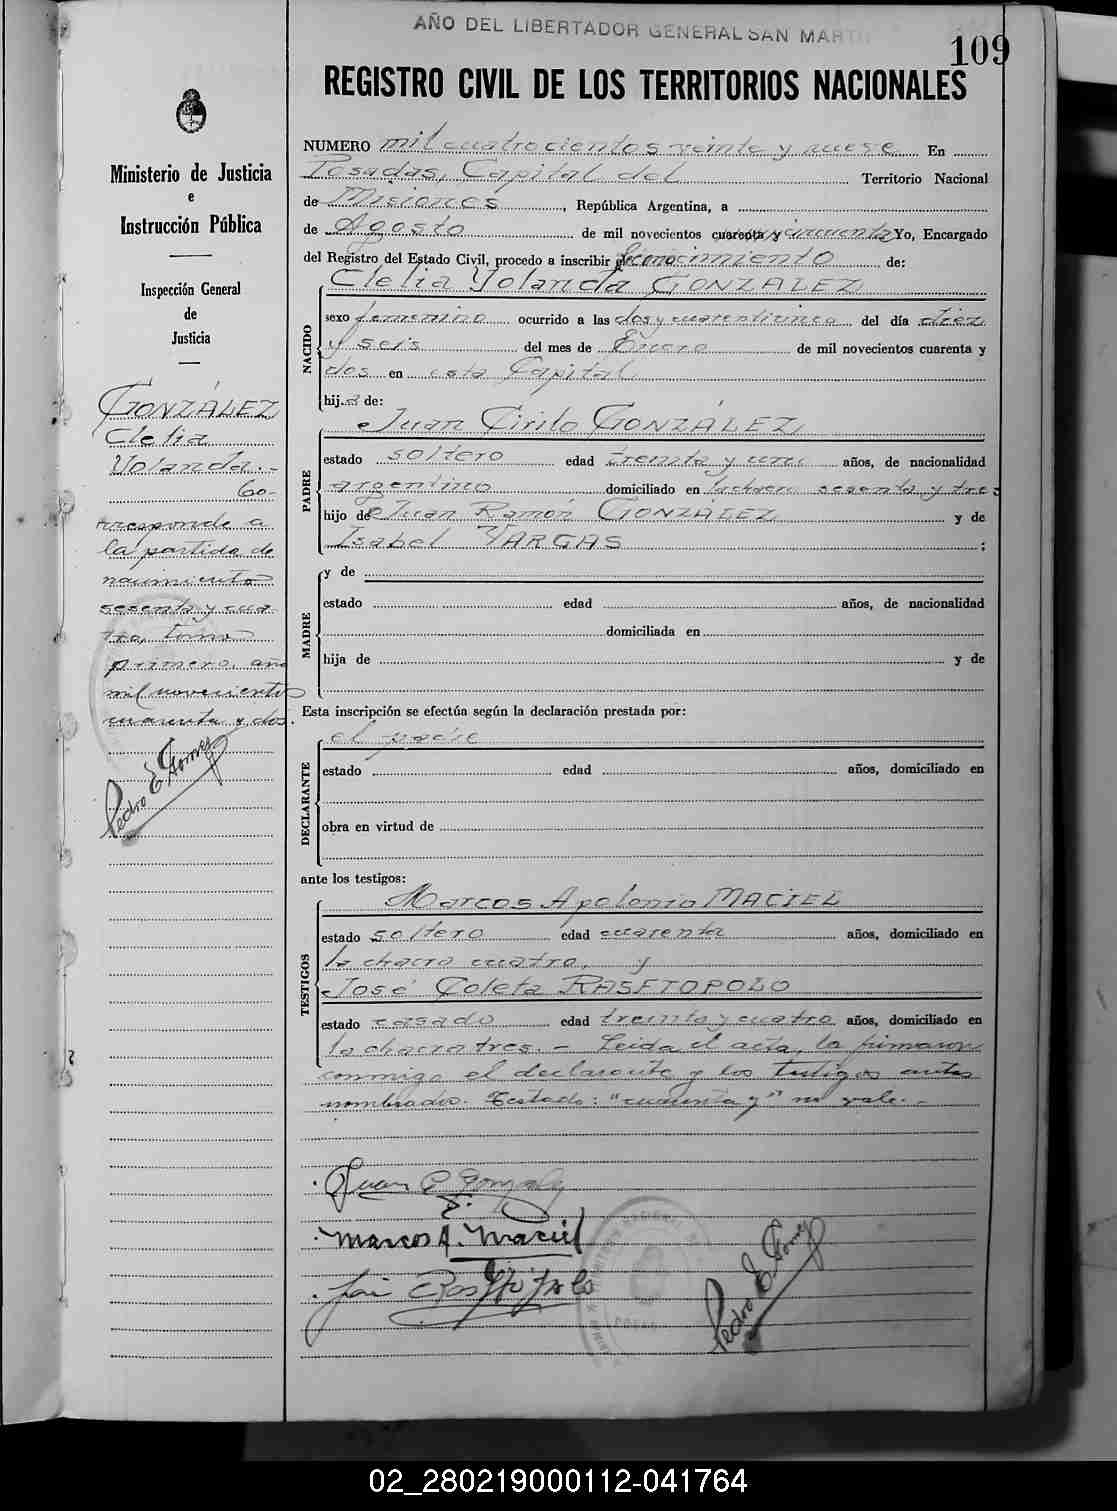 AÑO DEL LIBERTADOR GENERAL SAN MARTIN
109
REGISTRO CIVIL DE LOS TERRITORIOS NACIONALES
Ministerio de Justicia
e
Instrucción Pública
Inspección General
de
Justicia
GONZÁLEZ
Clelia
Yolanda.-
Co-
rresponde a
la partida de
nacimiento
sesenta y cua-
tro, tomo
primero, año
mil novecientos
cuarenta y dos.
Pedro E. Torres
NUMERO mil cuatrocientos veinte y nueve En
Posadas, Capital del Territorio Nacional
de Misiones, República Argentina, a
de Agosto de mil novecientos cuarenta y cincuenta Yo, Encargado
del Registro del Estado Civil, procedo a inscribir el reconocimiento de:
NACIDO
Clelia Yolanda GONZALEZ
sexo femenino ocurrido a las dos y cuarenticinco del día diez
y seis del mes de Enero de mil novecientos cuarenta y
dos en esta Capital
hija de:
PADRE
Juan Cirilo GONZÁLEZ
estado soltero edad treinta y uno años, de nacionalidad
argentino domiciliado en la chacra sesenta y tres
hijo de Juan Ramón GONZALEZ y de
Isabel VARGAS ;
MADRE
y de
estado edad años, de nacionalidad
domiciliada en
hija de y de
Esta inscripción se efectúa según la declaración prestada por:
DECLARANTE
el padre
estado edad años, domiciliado en
obra en virtud de
ante los testigos:
TESTIGOS
Marcos Apolonio MACIEL
estado soltero edad cuarenta años, domiciliado en
la chacra cuatro, y
José Coleta RASFTOPOLO
estado casado edad treinta y cuatro años, domiciliado en
la chacra tres.- Leída el acta, la firmaron
conmigo el declarante y los testigos antes
nombrados. Testado: "cuarenta y" no vale.-
Juan C. Gonzalez
Marcos A. Maciel
José
Pedro E. Torres
02_280219000112-041764